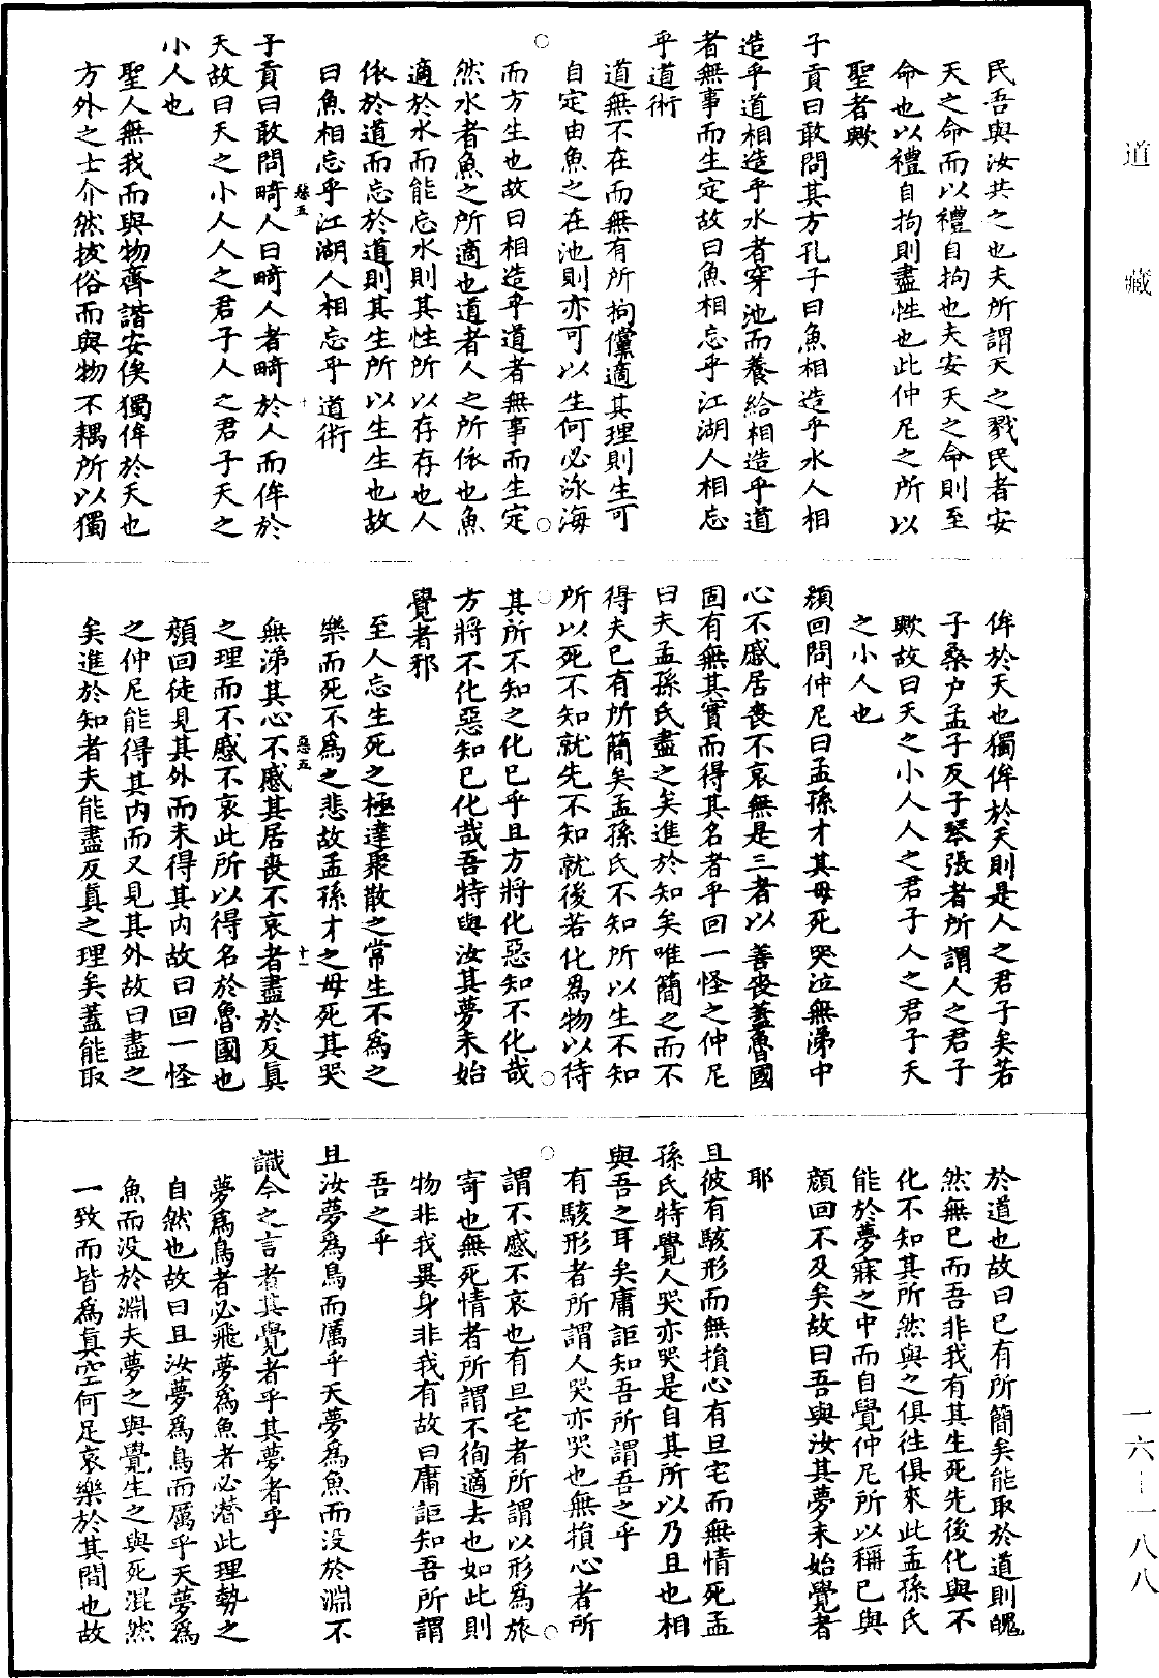 道藏
民吾與汝共之也夫所謂天之戮民者安
天之命而以禮自拘也夫安天之命則至
命也以禮自拘則盡性也此仲尼之所以
聖者歟
子貢曰敢問其方孔子曰魚相造乎水人相
造乎道相造乎水者穿池而養給相造乎道
者無事而生定故曰魚相忘乎江湖人相忘
乎道術
道無不在而無有所拘儻適其理則生可
自定由魚之在池則亦可以生何必泳海
而方生也故曰相造乎道者無事而生定
然水者魚之所適也道者人之所依也魚
適於水而能忘水則其性所以存存也人
依於道而忘於道則其生所以生生也故
曰魚相忘乎江湖人相忘乎道術
子貢曰敢問畸人曰畸人者畸於人而侔於
天故曰天之小人人之君子人之君子天之
小人也
聖人無我而與物齊諧安俟獨侔於天也
方外之士介然拔俗而與物不耦所以獨
侔於天也獨侔於天則是人之君子矣若
子桑户孟子反子琴張者所謂人之君子
歟故曰天之小人人之君子人之君子天
之小人也
顔回問仲尼曰孟孫才其母死哭泣無涕中
心不慼居喪不哀無是三者以善喪蓋魯國
固有無其實而得其名者乎回一怪之仲尼
曰夫孟孫氏盡之矣進於知矣唯簡之而不
得夫已有所簡矣孟孫氏不知所以生不知
所以死不知就先不知就後若化爲物以待
其所不知之化已乎且方將化惡知不化哉
方將不化惡知已化哉吾特與汝其夢未始
覺者邪
至人忘生死之極達聚散之常生不爲之
樂而死不爲之悲故孟孫才之母死其哭
無涕其心不慼其居喪不哀者盡於反真
之理而不慼不哀此所以得名於魯國也
顔回徒見其外而未得其内故曰回一怪
之仲尼能得其内而又見其外故曰盡之
矣進於知者夫能盡反真之理矣蓋能取
於道也故曰已有所簡矣能取於道則魄
然無已而吾非我有其生死先後化與不
化不知其所然與之俱往俱來此孟孫氏
能於夢寐之中而自覺仲尼所以稱已與
顔回不及矣故曰吾與汝其夢未始覺者
耶
且彼有駭形而無損心有旦宅而無情死孟
孫氏特覺人哭亦哭是自其所以乃且也相
與吾之耳矣庸詎知吾所謂吾之乎
有駭形者所謂人哭亦哭也無損心者所
謂不慼不哀也有旦宅者所謂以形爲旅
寄也無死情者所謂不徇適去也如此則
物非我異身非我有故曰庸詎知吾所謂
吾之乎
且汝夢爲鳥而厲乎天夢爲魚而没於淵不
識今之言者其覺者乎其夢者乎
夢爲鳥者必飛夢爲魚者必潛此理勢之
自然也故曰且汝夢爲鳥而厲乎天夢爲
魚而没於淵夫夢之與覺生之與死混然
一致而皆爲真空何足哀樂於其間也故
一六—一八八